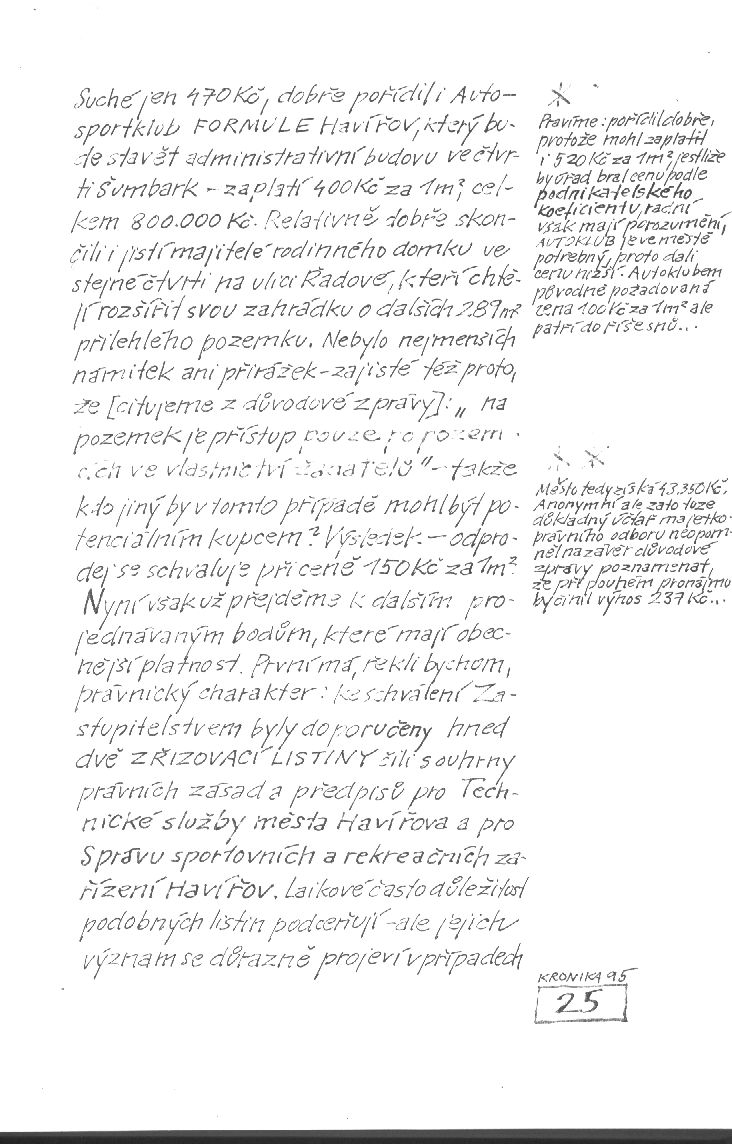 Suché jen 470Kč, dobře pořídil i Auto-
sportklub FORMULE Havířov, který bu-
de stavět administrativní budovu ve čtvr-
ti Šumbark - zaplatí 400Kč za 1m², cel-
kem 800.000 Kč. Relativně dobře skon-
čili i jistí majitelé rodinného domku ve
stejné čtvrti na ulici Řadové, kteří chtě-
jí rozšířit svou zahrádku o dalších 289m²
přilehlého pozemku. Nebylo nejmenších
námitek ani přirážek - zajisté též proto,
že [citujeme z důvodové zprávy]: „ na
pozemek je přístup pouze po pozem
cích ve vlastnictví žadatelů" - takže
kdo jiný by v tomto případě mohl být po-
tenciálním kupcem? Výsledek - odpro-
dej se schvaluje při ceně 150Kč za 1m².
Nyní však už přejděme k dalším pro-
jednávaným bodům, které mají obec-
nější platnost. První má, řekli bychom,
právnický charakter: ke schválení Za-
stupitelstvem byly doporučeny hned
dvě ZŘIZOVACÍ LISTINY čili souhrny
právních zásad a předpisů pro Tech-
nické služby města Havířova a pro
Správu sportovních a rekreačních za-
řízení Havířov. Laikové často důležitost
podobných listin podceňují - ale jejich
význam se důrazně projeví v případech
*
Pravíme: pořídil dobře,
protože mohl zaplatit
i 520Kč za 1m², jestliže
by úřad bral cenu podle
podnikatelského
koeficientu, radní
však mají porozumění,
AUTOKLUB je ve městě
potřebný, proto dali
cenu nižší. Autoklubem
původně požadovaná
cena 100Kč za 1m² ale
patří do říše snů...
* *
Město tedy získá 43.350Kč.
Anonymní ale zato tuze
důkladný účtař majetko-
právního odboru neopom-
něl na závěr důvodové
zprávy poznamenat,
že při pouhém pronájmu
by činil výnos 237 Kč...
KRONIKA 95
25